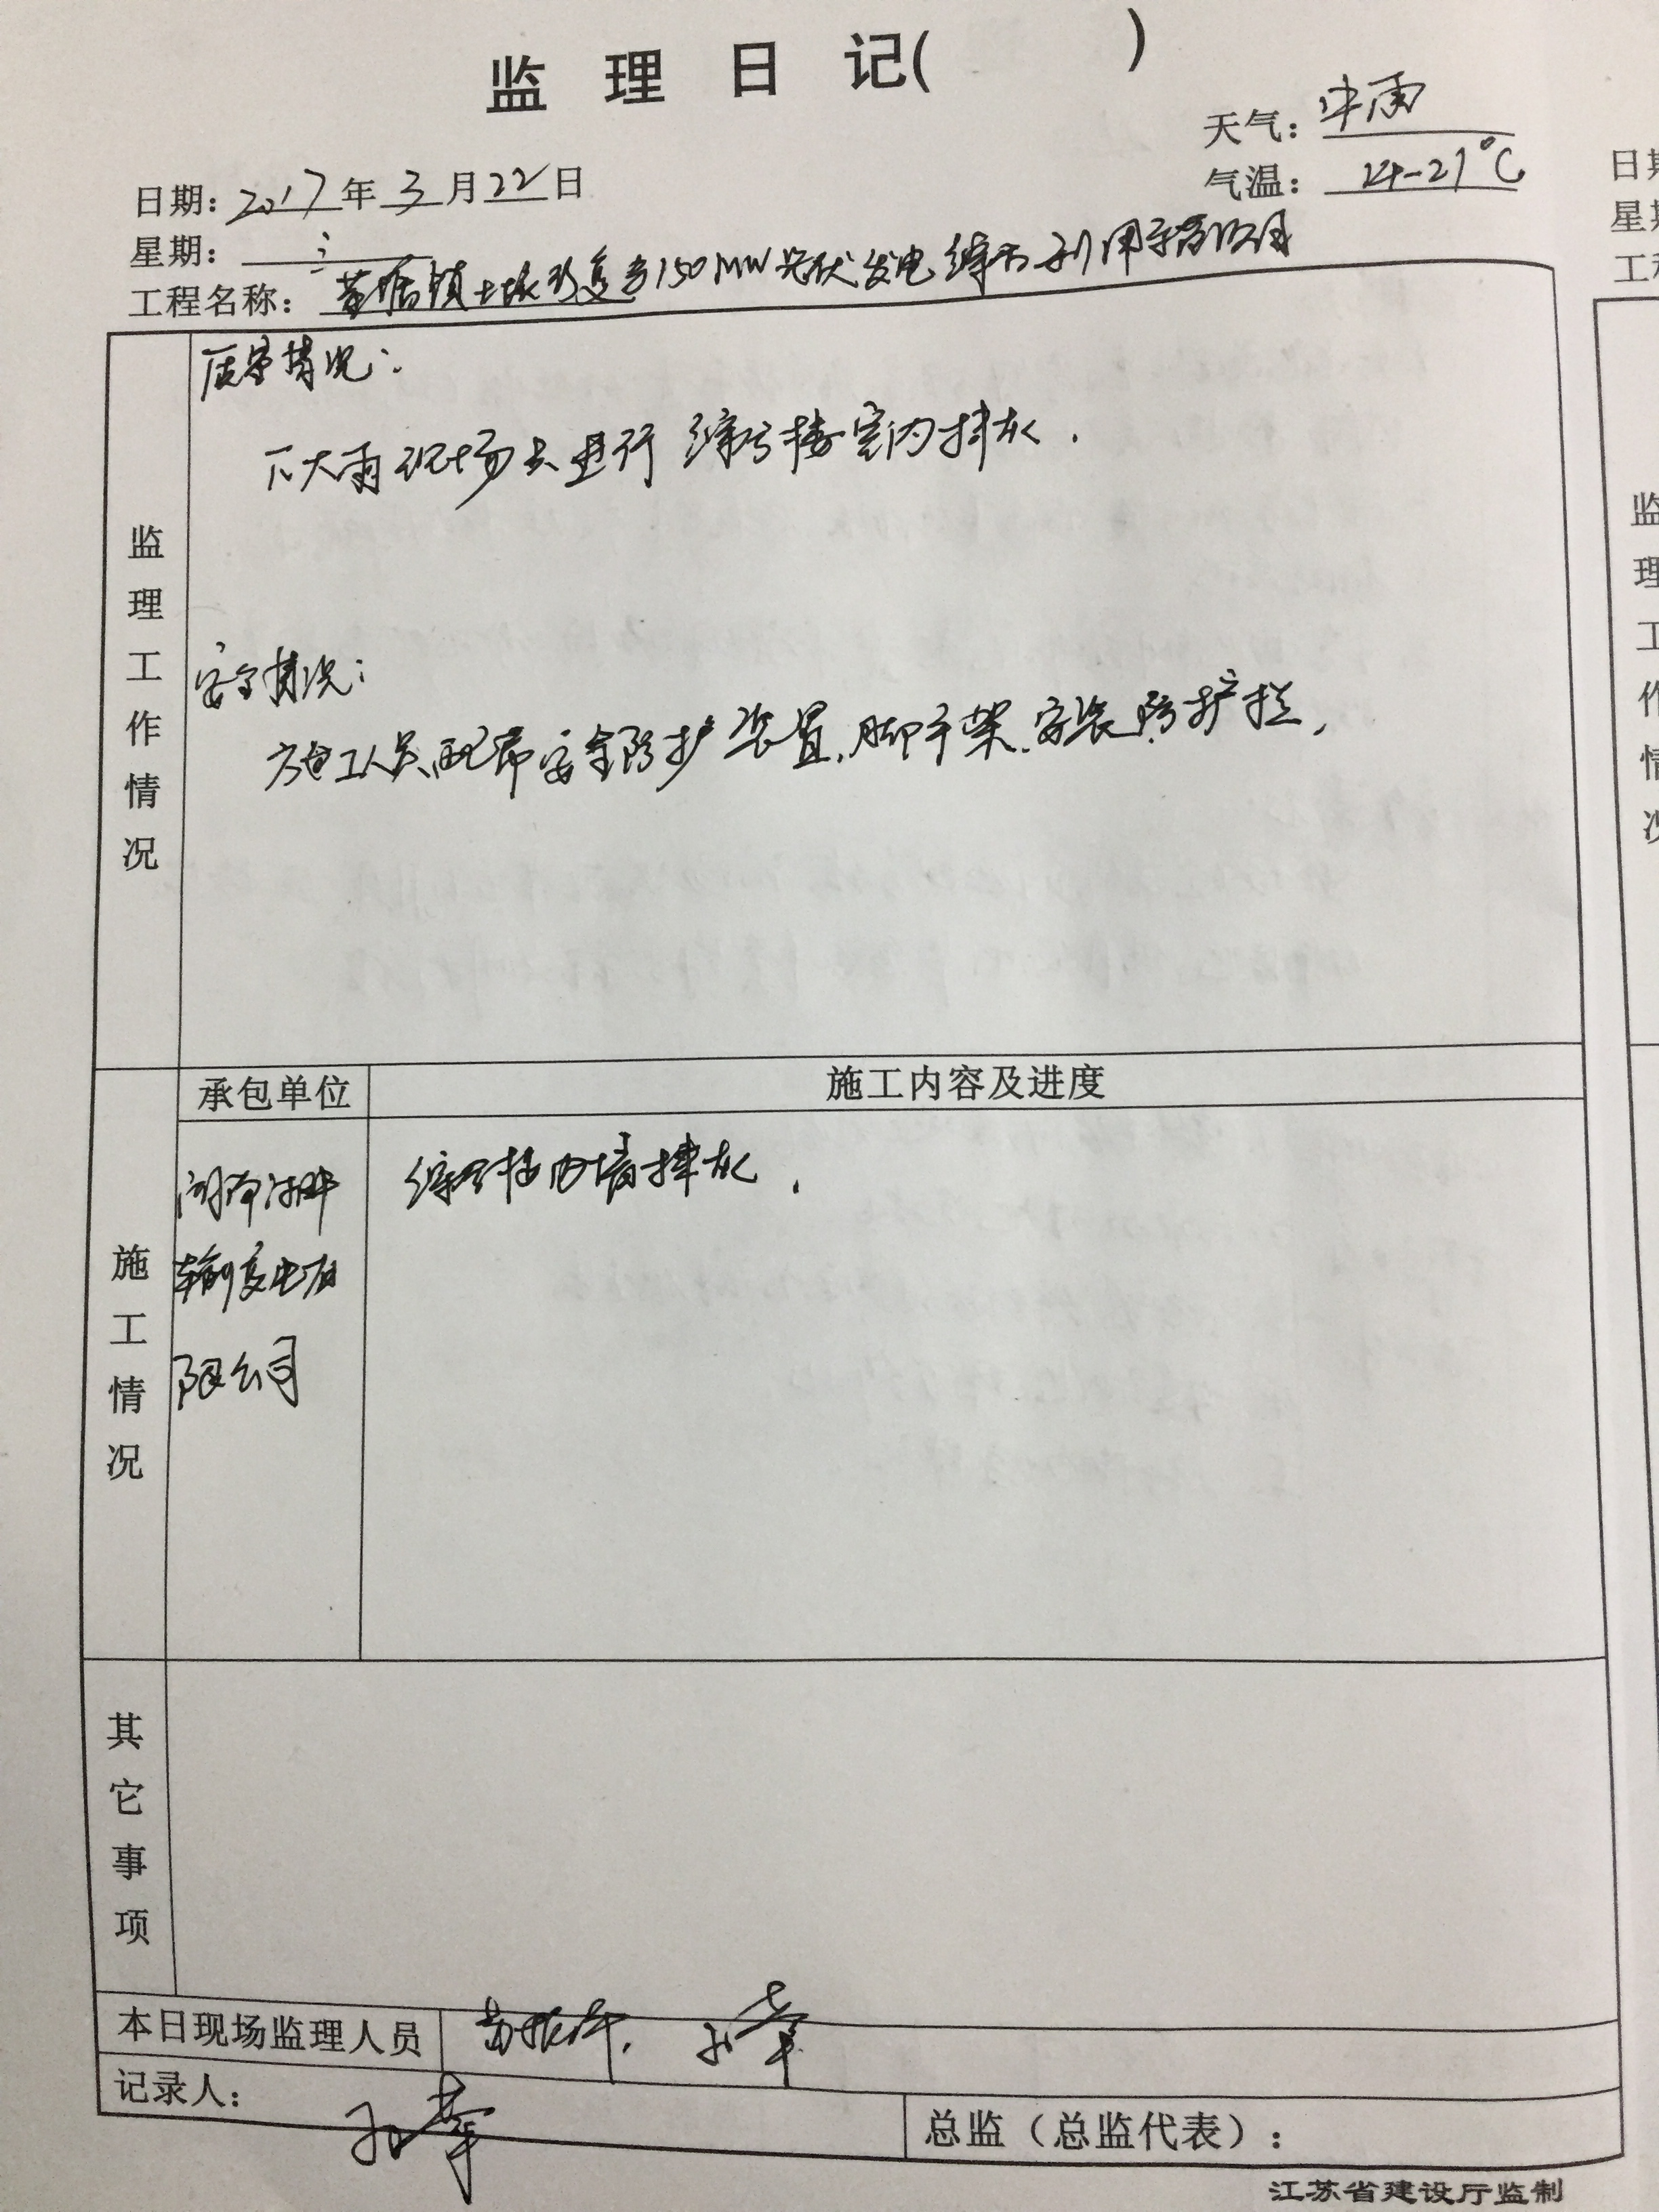 监理日记( )
天气：中雨
日期：2017年3月22日
气温：14-21℃
星期：三
工程名称：镇土壤修复与150MW光伏发电综合利用示范项目
质量情况：
下大雨现场只进行综合楼室内抹灰.
安全情况：
施工人员配带安全防护装置,脚手架安装防护拦,
监理工作情况
承包单位
施工内容及进度
综合楼内墙抹灰.
河南
输变电有
限公司
施工情况
其它事项
本日现场监理人员
记录人：
总监（总监代表）：
江苏省建设厅监制
日期
星期
工程
监理工作情况